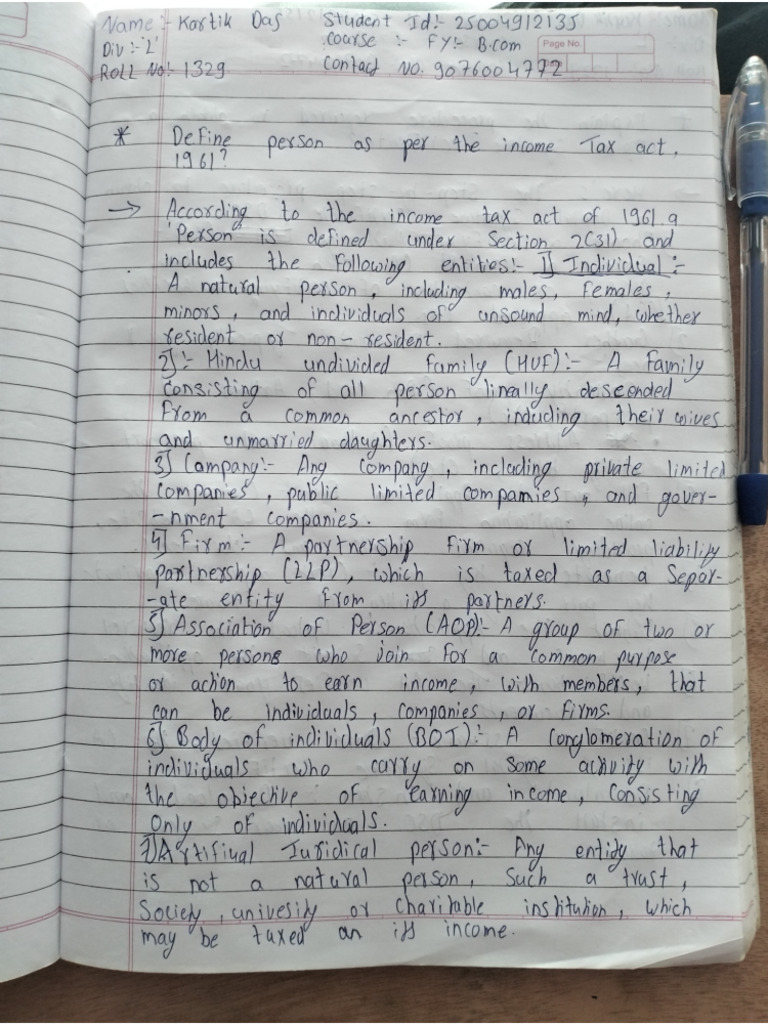 Name:- Kartik Das Student Id:- 25004912135
Div:-'L' Course :- FY:- B.com
Page No.
Roll No:- 1329 Contact No. 9076004772
* Define person as per the income Tax act,
1961?
→ According to the income tax act of 1961 a
'Person" is defined under Section 2(31) and
includes the Following entities:- 1] Individual:-
A natural person, including males, Females,
minors, and individuals of unsound mind, whether
resident or non-resident.
2]:- Hindu undivided Family (HUF):- A Family
Consisting of all person lineally descended
From a common ancestor, including their wives
and unmarried daughters.
3] Company:- Any Company, including private limited
Companies, public limited compamies, and gover-
-nment companies.
4] Firm:- A partnership Firm or limited liability
partnership (LLP), which is taxed as a Separ-
-ate entity From its partners.
5] Association of Person (AOP):- A group of two or
more persons who join For a common purpose
or action to earn income, with members, that
can be individuals, companies, or Firms.
6] Body of individuals (BOI):- A Conglomeration of
individuals who carry on Some activity with
the objective of earning income, Consisting
Only of individuals.
7] Artifiual Juridical person:- Any entity that
is not a natural person, Such a trust,
Society, univesity or Charitable institution, which
may be taxed on its income.